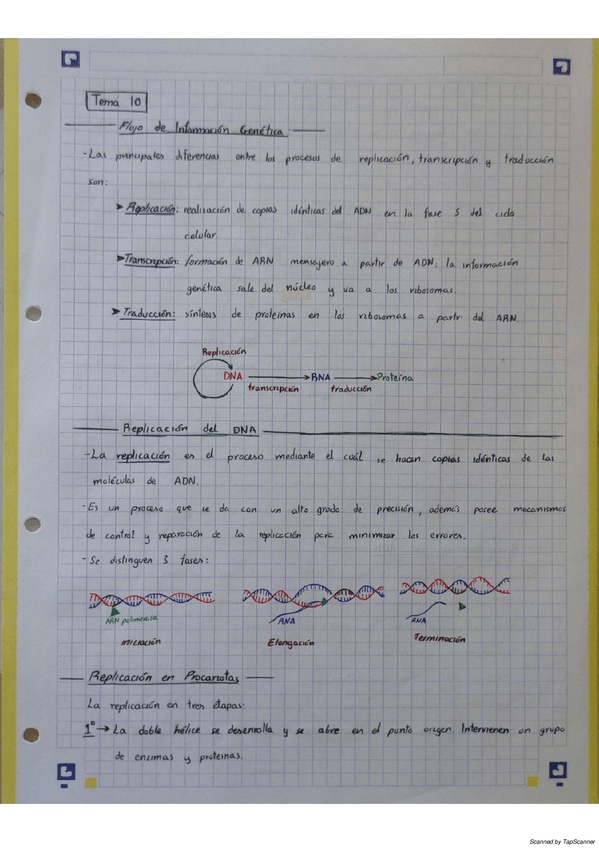 Tema 10
Flujo de Información Genética
- Las principales diferencias entre los procesos de replicación, transcripción y traducción
son:
➤ Replicación: realización de copias idénticas del ADN en la fase S del ciclo
celular.
➤ Transcripción: formación de ARN mensajero a partir de ADN. la información
genética sale del núcleo y va a los ribosomas.
➤ Traducción: síntesis de proteínas en los ribosomas a partir del ARN
Replicación
DNA → RNA → Proteína
transcripción traducción
Replicación del DNA
- La replicación es el proceso mediante el cuál se hacen copias idénticas de las
moléculas de ADN.
- Es un proceso que se da con un alto grado de precisión, además posee mecanismos
de control y reparación de la replicación para minimizar los errores.
- Se distinguen 3 fases:
ARN polimerasa
RNA
RNA
Iniciación
Elongación
Terminación
Replicación en Procariotas
La replicación en tres etapas:
1º → La doble hélice se desenrolla y se abre en el punto origen. Intervienen un grupo
de enzimas y proteínas.
Scanned by TapScanner